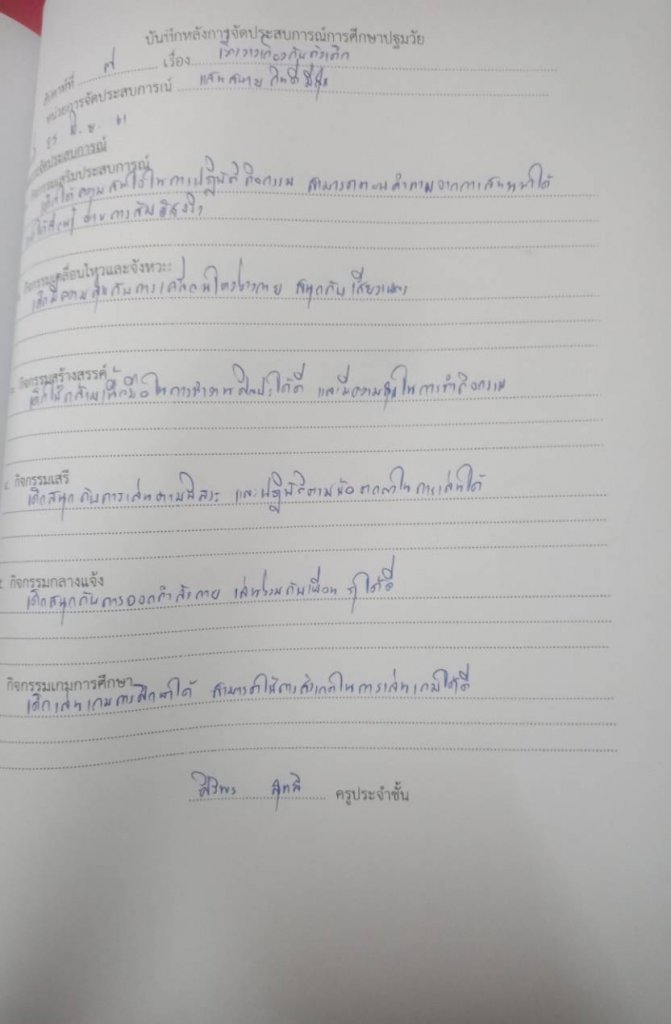 บันทึกหลังการจัดประสบการณ์การศึกษาปฐมวัย
สัปดาห์ที่ ๗ เรื่อง เรื่องราวเกี่ยวกับตัวเด็ก
หน่วยการจัดประสบการณ์ แสนสบาย
การจัดประสบการณ์
กิจกรรมเสริมประสบการณ์
เด็กให้ความสนใจในการปฏิบัติกิจกรรม สามารถตอบคำถามจากการสนทนาได้
กิจกรรมเคลื่อนไหวและจังหวะ
เด็กมีความสุขกับการเคลื่อนไหวร่างกาย สนุกกับเสียงเพลง
กิจกรรมสร้างสรรค์
เด็กใช้กล้ามเนื้อมือในการทำงานศิลปะได้ดี และมีความสุขในการทำกิจกรรม
๔ กิจกรรมเสรี
เด็กสนุกกับการเล่นตามอิสระ และปฏิบัติตามข้อตกลงในการเล่นได้
๕ กิจกรรมกลางแจ้ง
เด็กสนุกกับการออกกำลังกาย เล่นร่วมกับเพื่อน ๆ ได้ดี
กิจกรรมเกมการศึกษา
เด็กเล่นเกมการศึกษาได้ สามารถใช้การสังเกตในการเล่นเกมได้ดี
ศิริพร ครูประจำชั้น